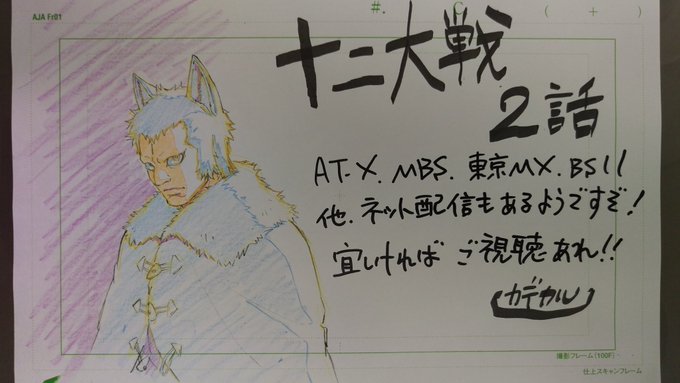 AJA Fr01
#.
C
( + )
十二大戦
2話
AT-X. MBS. 東京MX. BS11
他. ネット配信もあるようですぞ!
宜しければ ご視聴あれ!!
カデカル
撮影フレーム(100F)
仕上スキャンフレーム